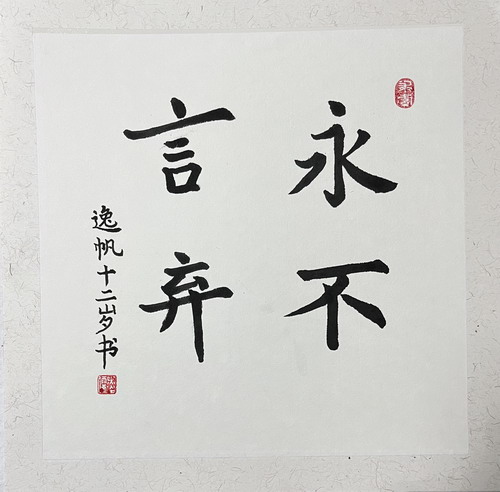 永不
言弃
逸帆十二岁书